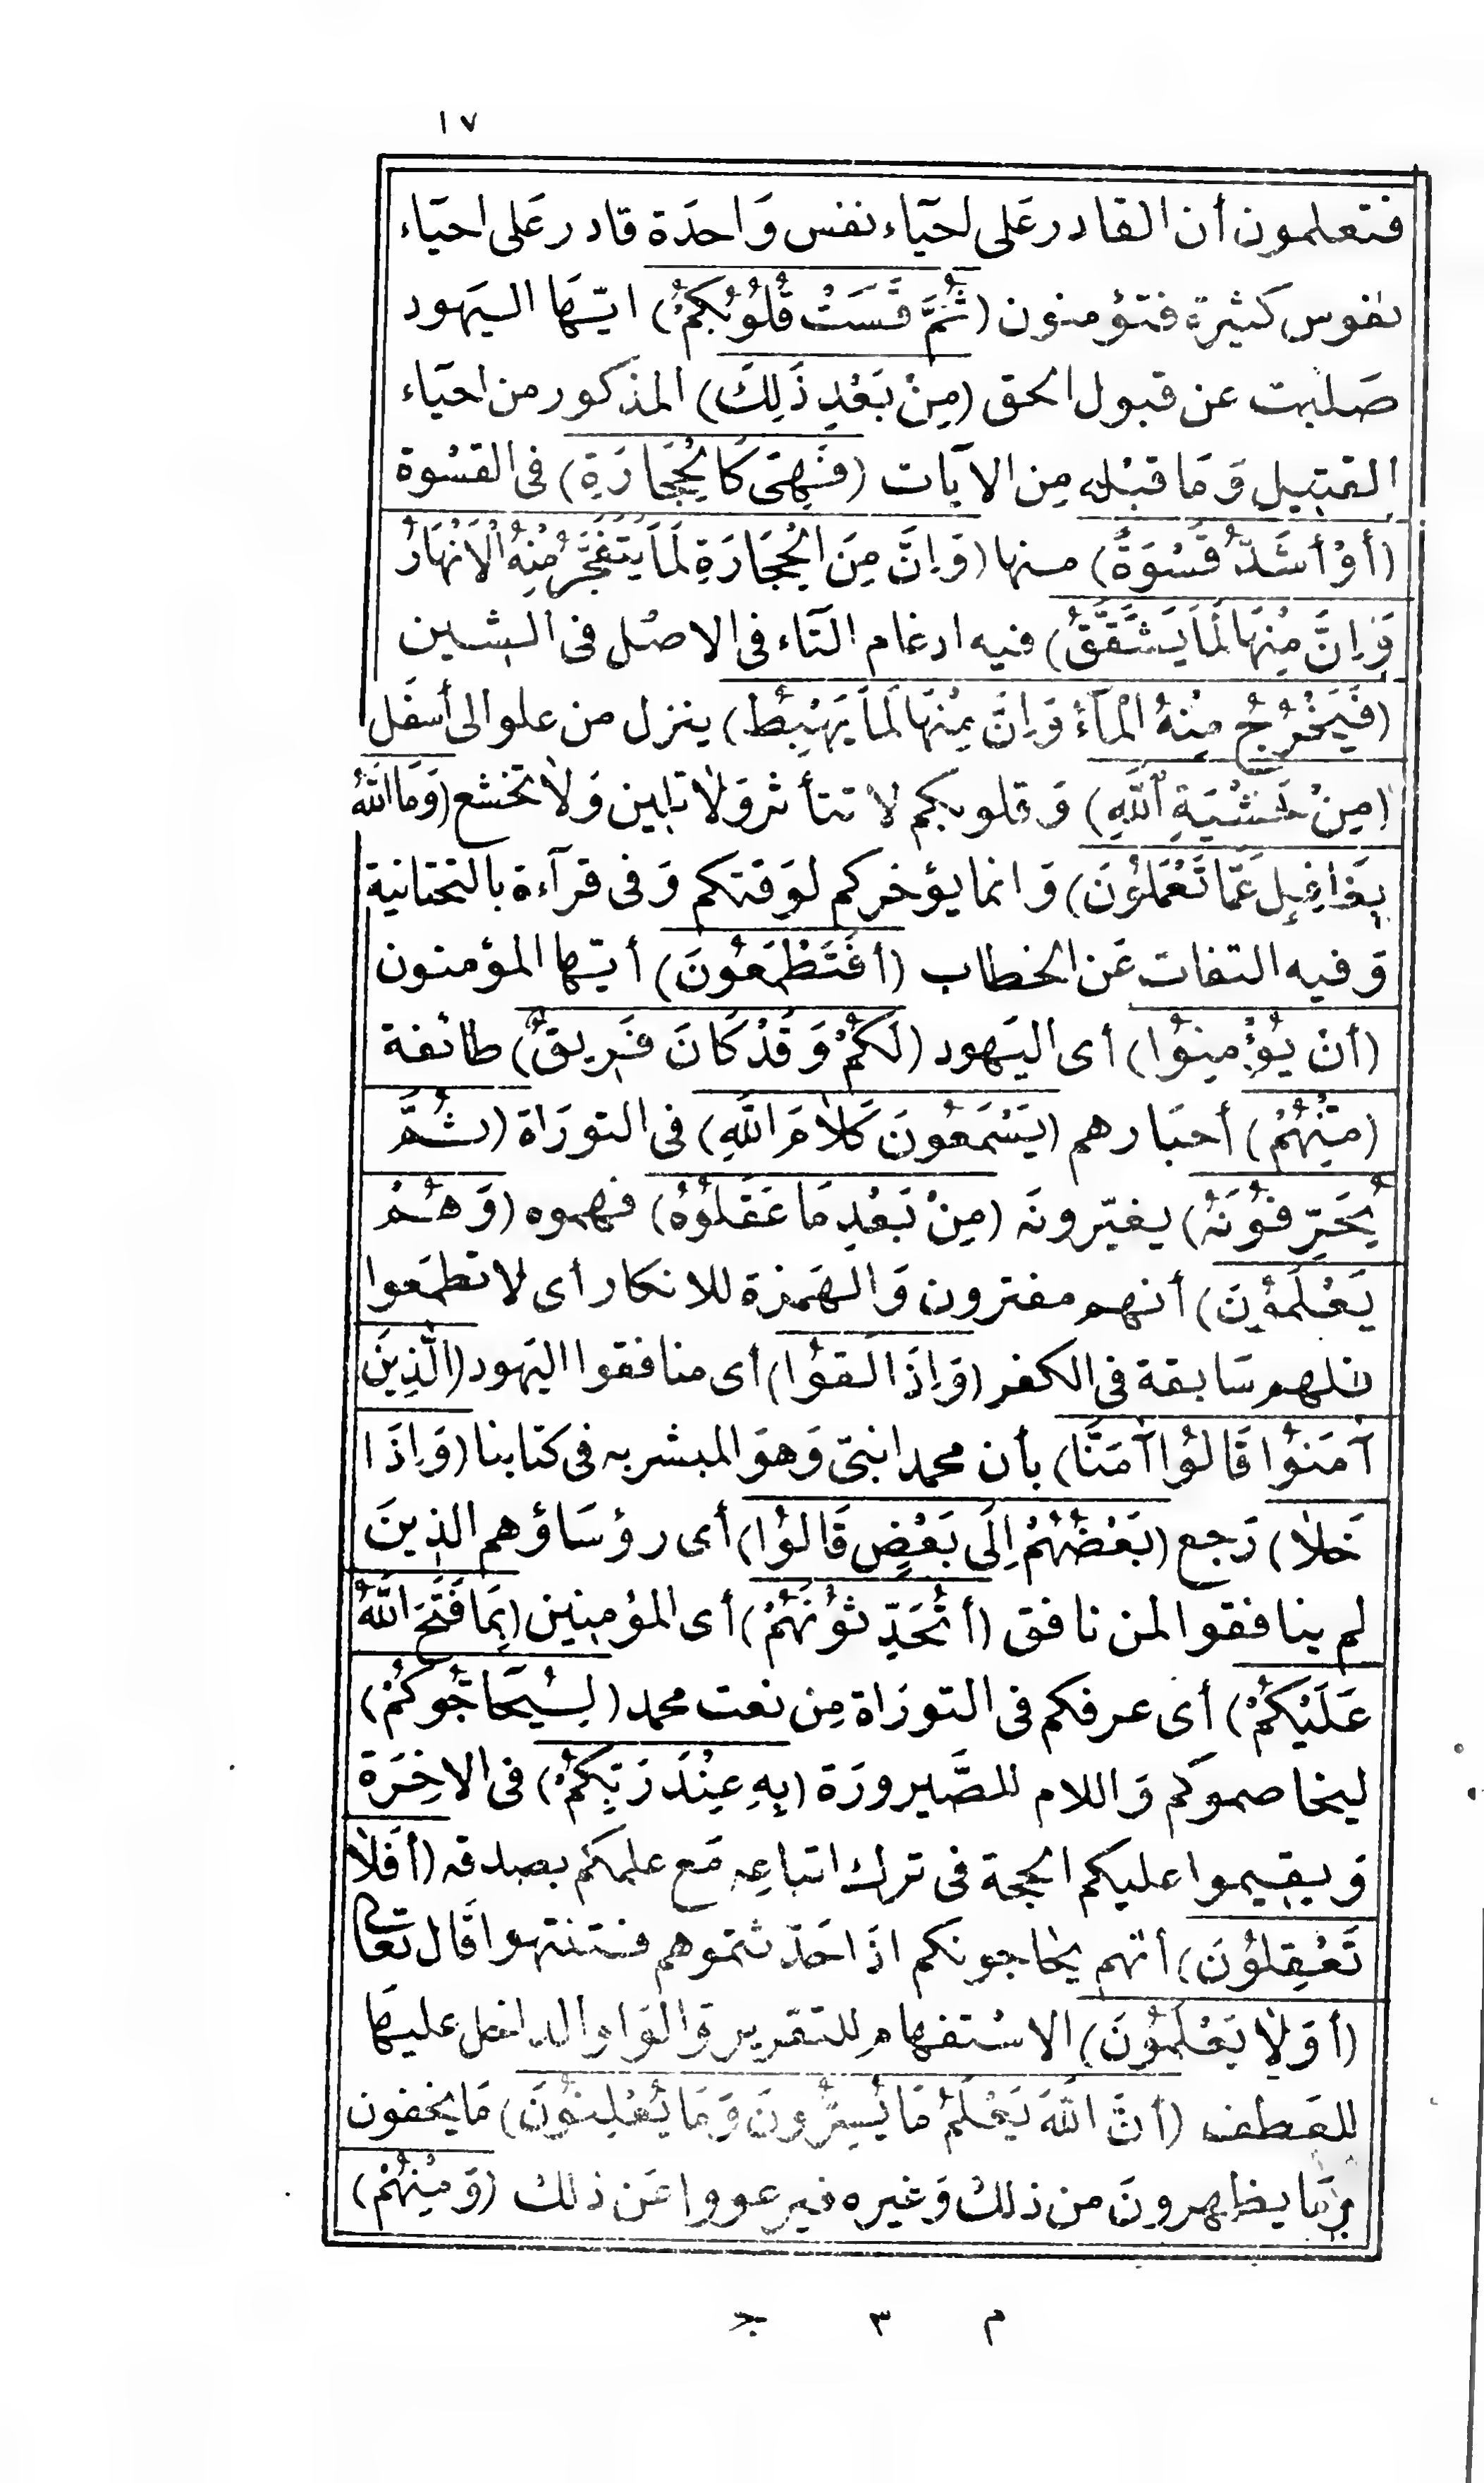 ١٧
فتعلمون أن القادر عَلى احيَاء نفس وَاحدَة قادر عَلى احيَاء
نفوس كثيرة فتؤمنون (ثُمَّ قَسَتْ قُلُوبُكُمْ) ايّهَا اليَهود
صَلبت عن قبول الحق (مِنْ بَعْدِ ذَلِكَ) المذكور من احيَاء
القتيل وَمَا قبْله مِن الآيات (فَهِىَ كَالْحِجَارَةِ) فى القسْوة
(أَوْ أَشَدُّ قَسْوَةً) منها (وَاِنَّ مِنَ الْحِجَارَةِ لَمَا يَتَفَجَّرُ مِنْهُ الْاَنْهَارُ
وَاِنَّ مِنْهَا لَمَا يَشَّقَّقُ) فيه ادغام التَاء فى الاصْل فى الشين
(فَيَخْرُجُ مِنْهُ الْمَآءُ وَاِنَّ مِنْهَا لَمَا يَهْبِطُ) ينزل من علو الى أسفَل
(مِنْ خَشْيَةِ اللَّهِ) وَقلوبكم لا تتأثر وَلا تلين وَلا تخشع (وَمَا اللَّهُ
بِغَافِلٍ عَمَّا تَعْمَلُونَ) وَانما يؤخركم لوَقتكم وَفى قرآءة بالتحتانية
وَفيه التفات عَن الخطاب (أَفَتَطْمَعُونَ) أيّها المؤمنون
(أَنْ يُؤْمِنُوا) أى اليَهود (لَكُمْ وَقَدْ كَانَ فَرِيقٌ) طائفة
(مِنْهُمْ) أحبَارهم (يَسْمَعُونَ كَلَامَ اللَّهِ) فى التورَاة (ثُمَّ
يُحَرِّفُونَهُ) يغيّرونَه (مِنْ بَعْدِ مَا عَقَلُوهُ) فهموه (وَهُمْ
يَعْلَمُونَ) أنهم مفترون وَالهَمزة للانكار أى لا تطمَعوا
فلهم سَابقة فى الكفر (وَاِذَا لَقُوا) أى منافقوا اليَهود (الَّذِينَ
آمَنُوا قَالُوا آمَنَّا) بأن محمدا نبىّ وَهوَ المبشر به فى كتابنا (وَاِذَا
خَلَا) رَجع (بَعْضُهُمْ اِلَى بَعْضٍ قَالُوا) أى رؤسَاؤهم الذينَ
لم ينافقوا لمن نافق (أَتُحَدِّثُونَهُمْ) أى المؤمنين (بِمَا فَتَحَ اللَّهُ
عَلَيْكُمْ) أى عرفكم فى التورَاة مِن نعت محمد (لِيُحَاجُّوكُمْ)
ليخاصموكم وَاللام للصَّيرورَة (بِهِ عِنْدَ رَبِّكُمْ) فى الاخِرَة
وَيقيموا عليكم الحجة فى ترك اتباعِه مَع علمكم بصدقه (أَفَلَا
تَعْقِلُونَ) أنهم يحاجونكم اذَا حَدّثتموهم فتنتهوا قَال تعالى
(أَوَلَا يَعْلَمُونَ) الاسْتفهام للتقرير وَالوَاو الداخل عليهَا
للعَطف (أَنَّ اللَّهَ يَعْلَمُ مَا يُسِرُّونَ وَمَا يُعْلِنُونَ) مَا يخفون
وَمَا يظهرونَ من ذلك وَغيره فيرعووا عَن ذلك (وَمِنْهُمْ)
م ٣ ج